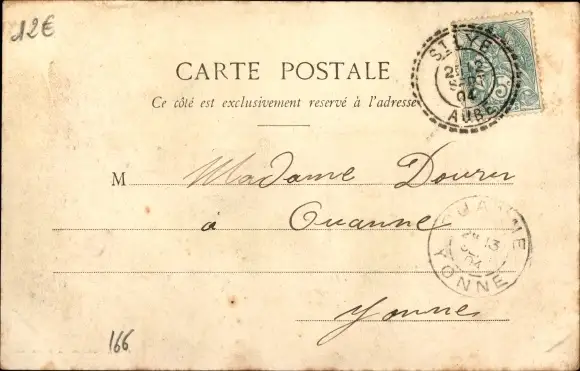 12€
ST LYE
AUBE
5
CARTE POSTALE
Ce côté est exclusivement reservé à l'adresse
M Madame Dourin
à Ouanne
OUANNE
13
04
YONNE
Yonne
166